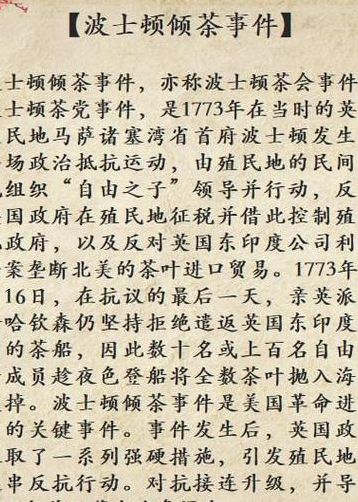 【波士顿倾茶事件】
士顿倾茶事件，亦称波士顿茶会事件
士顿茶党事件，是1773年在当时的英
民地马萨诸塞湾省首府波士顿发生
场政治抵抗运动，由殖民地的民间
组织“自由之子”领导并行动，反
国政府在殖民地征税并借此控制殖
政府，以及反对英国东印度公司利
案垄断北美的茶叶进口贸易。1773年
16日，在抗议的最后一天，亲英派
哈钦森仍坚持拒绝遣返英国东印度
的茶船，因此数十名或上百名自由
成员趁夜色登船将全数茶叶抛入海
掉。波士顿倾茶事件是美国革命进
的关键事件。事件发生后，英国政
取了一系列强硬措施，引发殖民地
串反抗行动。对抗接连升级，并导